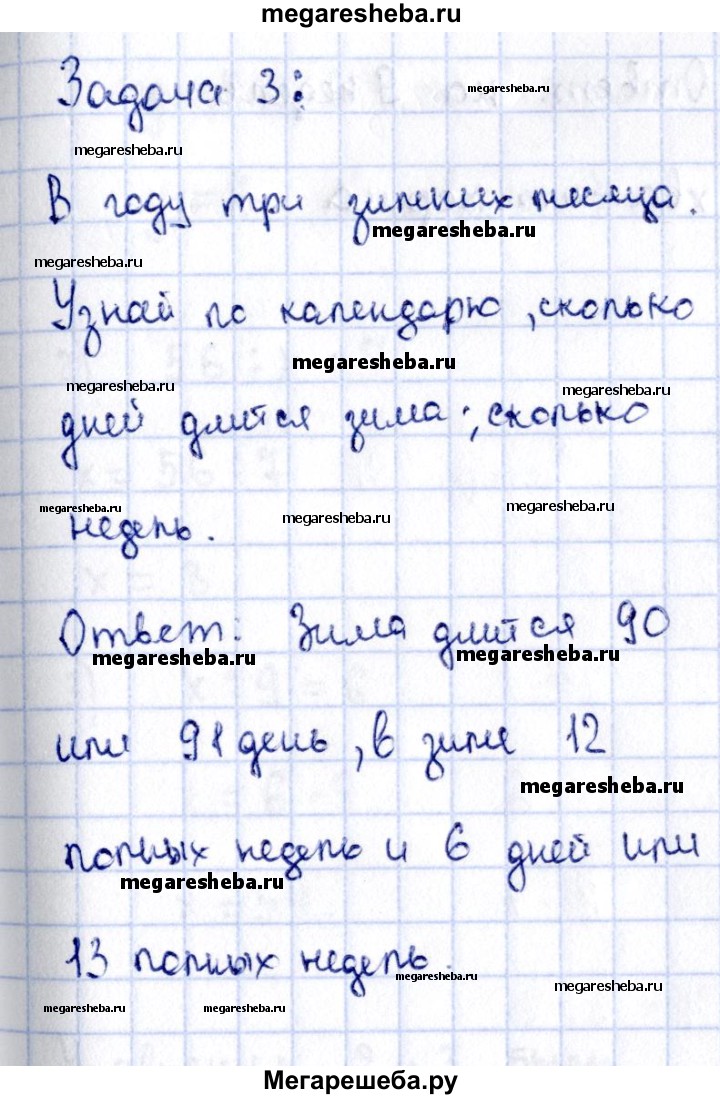 megaresheba.ru
Задача 3:
megaresheba.ru
megaresheba.ru
В году три зимних месяца.
megaresheba.ru
megaresheba.ru
Узнай по календарю, сколько
megaresheba.ru
megaresheba.ru
megaresheba.ru
дней длится зима; сколько
megaresheba.ru
megaresheba.ru
megaresheba.ru
недель.
Ответ: Зима длится 90
megaresheba.ru
megaresheba.ru
или 91 день, в зиме 12
megaresheba.ru
полных недель и 6 дней или
megaresheba.ru
13 полных недель.
megaresheba.ru
megaresheba.ru
megaresheba.ru
megaresheba.ru
Мегарешеба.ру